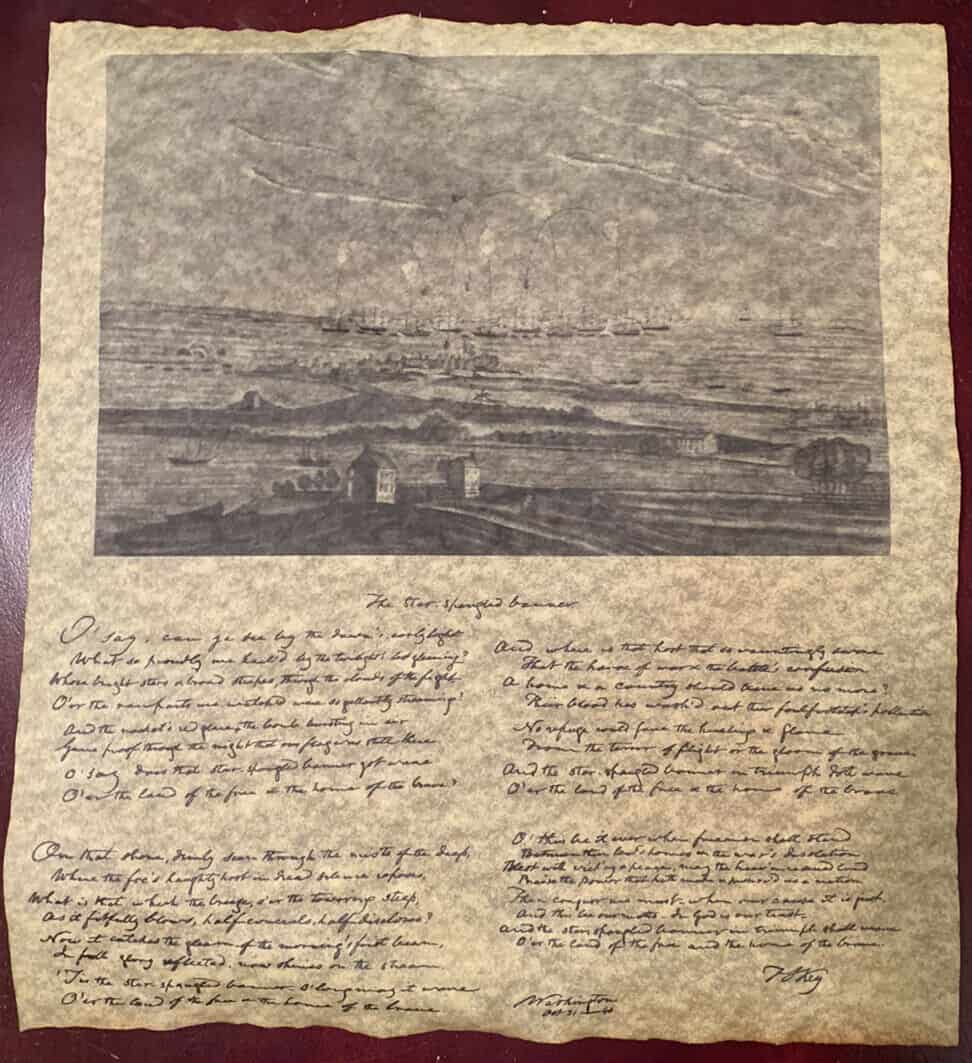 The Star-Spangled banner
O! say, can ye see by the dawn's early light
What so proudly we hail'd by the twilight's last gleaming?
Whose bright stars & broad stripes through the clouds of the fight
O'er the ramparts we watched were so gallantly streaming?
And the rocket's red glare, the bomb bursting in air
Gave proof through the night that our flag was still there
O! say does that star-spangled banner yet wave
O'er the land of the free & the home of the brave?
On that shore, dimly seen through the mists of the deep,
Where the foe's haughty host in dread silence reposes,
What is that which the breeze, o'er the towering steep,
As it fitfully blows, half conceals, half discloses?
Now it catches the gleam of the morning's first beam,
In full glory reflected, now shines on the stream
'Tis the star-spangled banner O! long may it wave
O'er the land of the free & the home of the brave
And where is that host that so vauntingly swore
That the havoc of war & the battle's confusion
A home & a country should leave us no more?
Their blood has wash'd out their foul footstep's pollution
No refuge could save the hireling & slave
From the terror of flight or the gloom of the grave
And the star-spangled banner in triumph doth wave
O'er the land of the free & the home of the brave
O! thus be it ever when freemen shall stand
Between their lov'd homes & the war's desolation
Blest with vict'ry & peace may the heav'n rescued land
Praise the power that hath made & preserv'd us a nation
Then conquer we must, when our cause it is just,
And this be our motto - In God is our trust
And the star-spangled banner in triumph shall wave
O'er the land of the free and the home of the brave.
F S Key
Washington
Oct 21 - 40